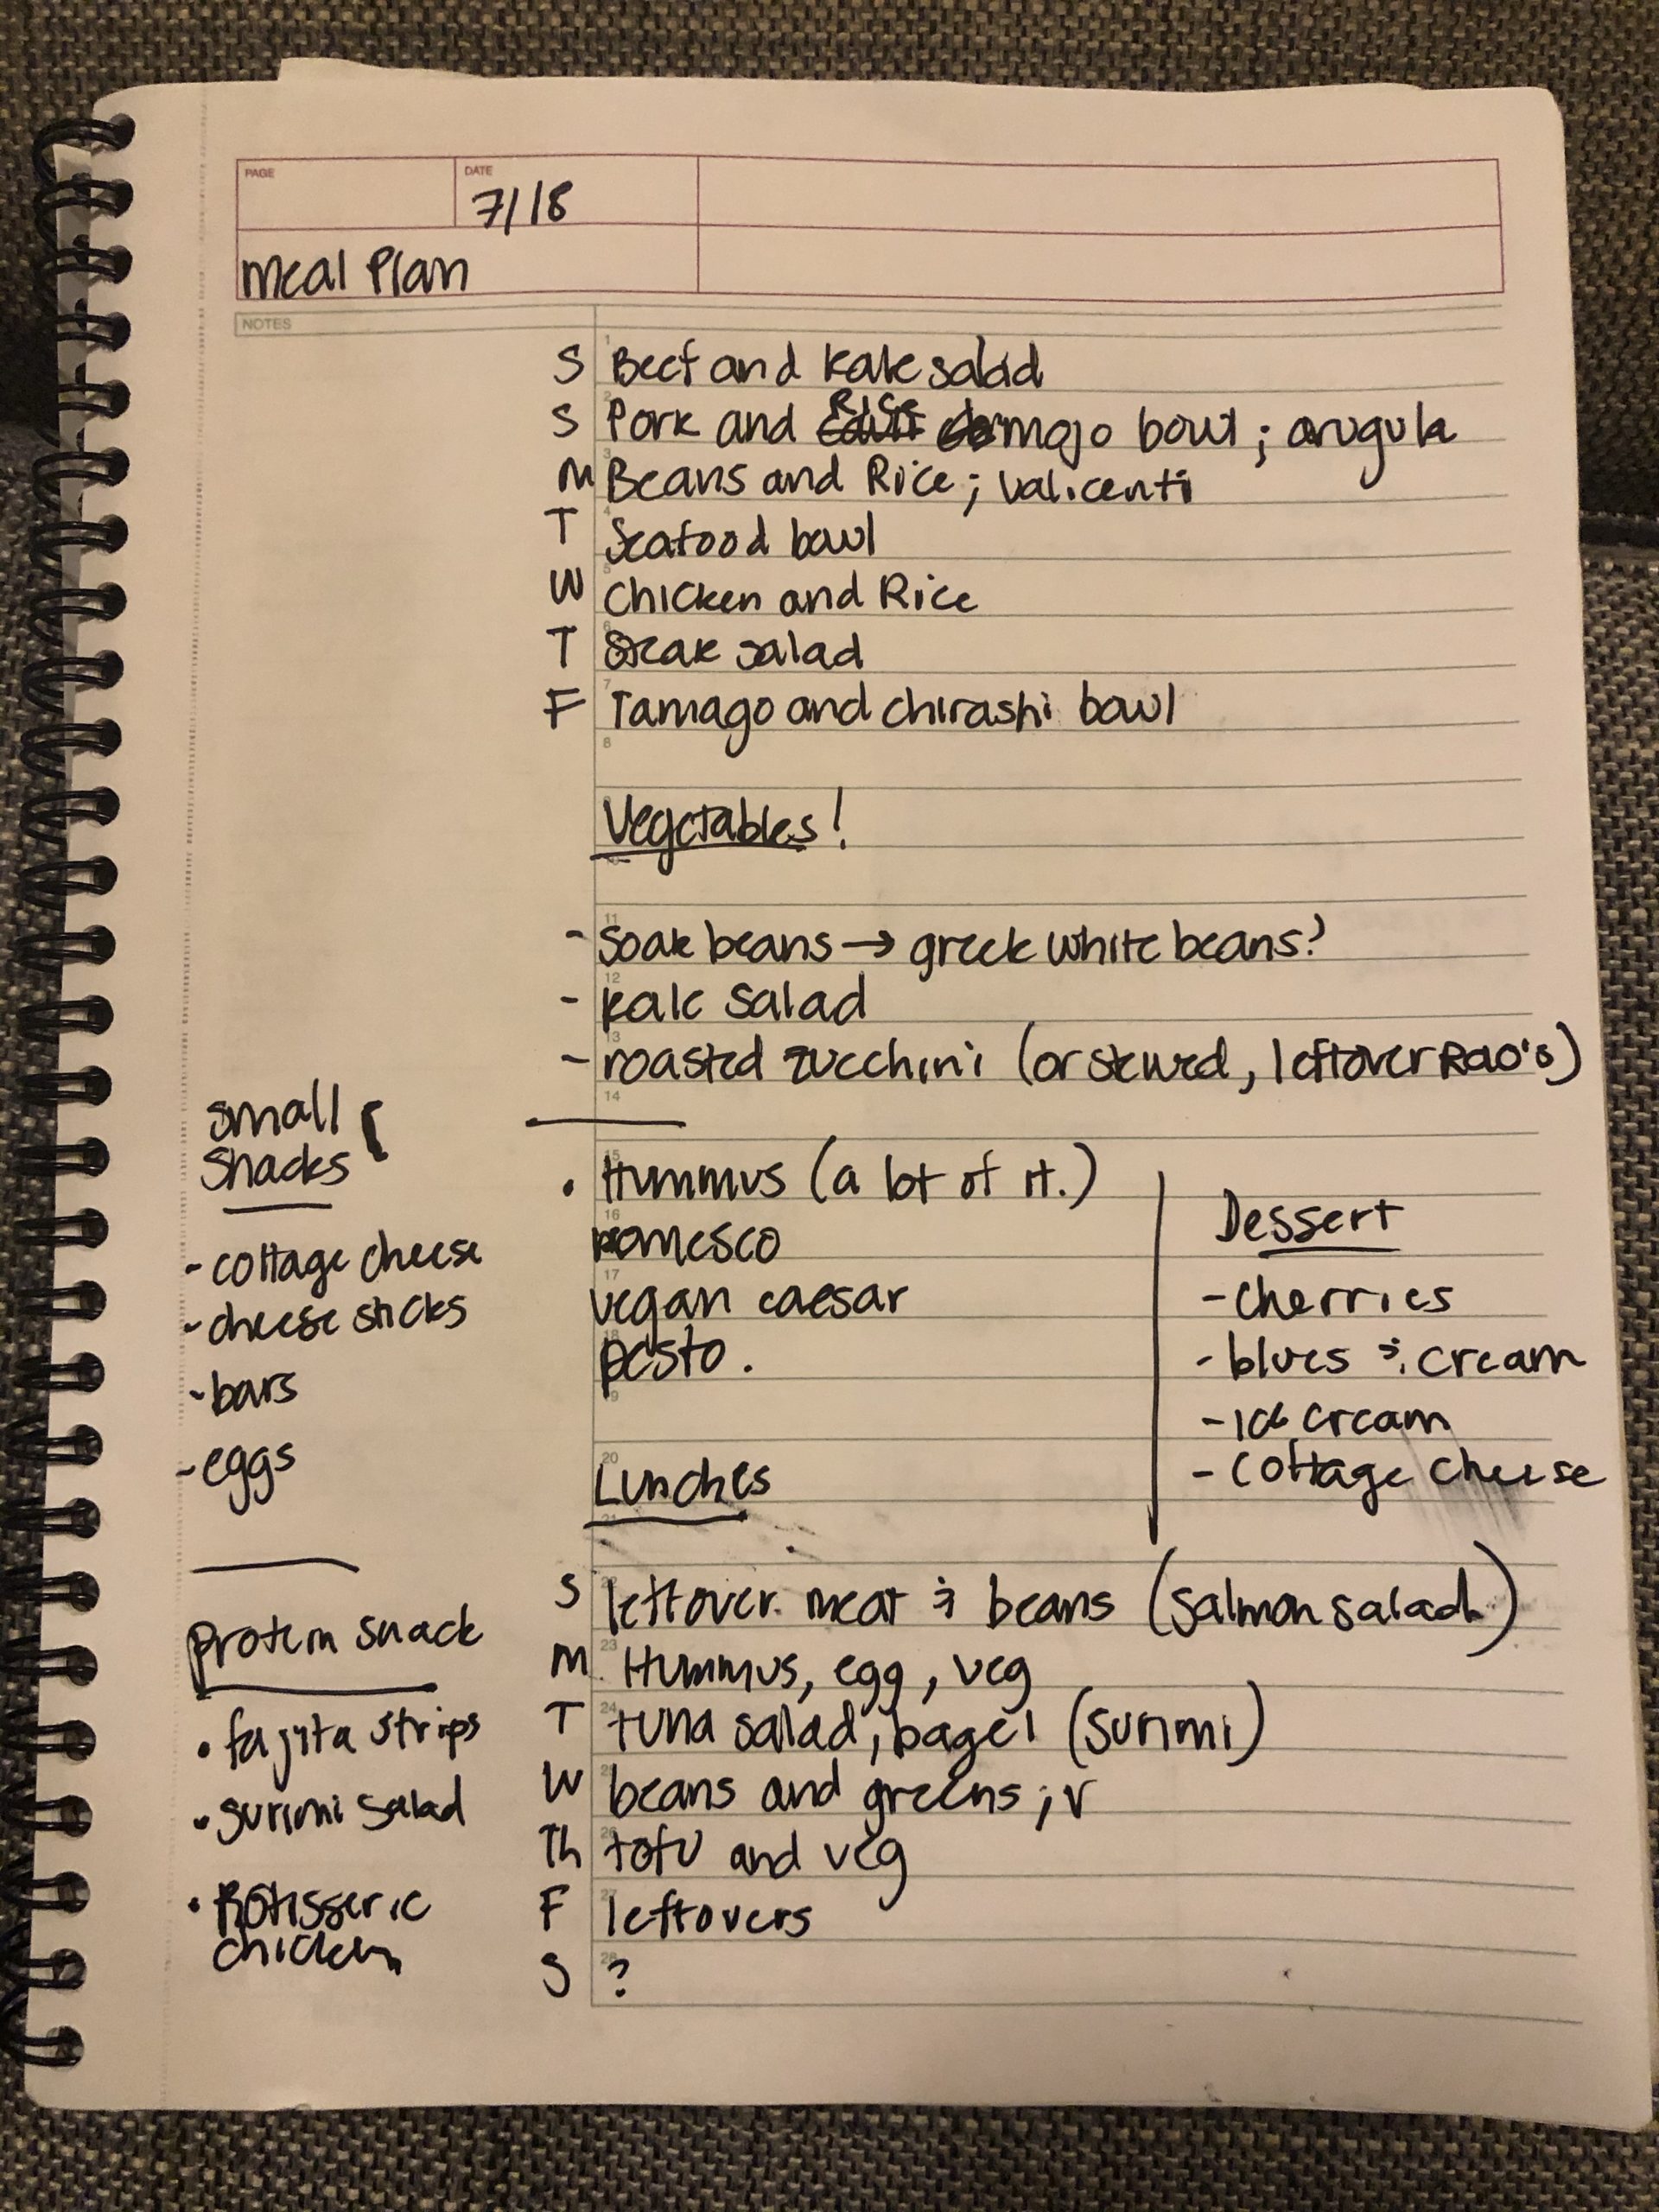 PAGE
DATE
7/18
Meal Plan
NOTES
S Beef and Kale salad
S Pork and Rice mojo bowl; arugula
M Beans and Rice; Valicenti
T Seafood bowl
W Chicken and Rice
T Steak salad
F Tamago and chirashi bowl
Vegetables!
- Soak beans → greek white beans?
- kale salad
- roasted zucchini (or stewed, leftover Rao's)
small
snacks
- cottage cheese
- cheese sticks
- bars
- eggs
• Hummus (a lot of it.)
romesco
vegan caesar
pesto.
Dessert
- cherries
- blues & cream
- ice cream
- cottage cheese
Lunches
S leftover meat & beans (salmon salad)
M Hummus, egg, veg
T tuna salad, bagel (surimi)
W beans and greens; v
Th tofu and veg
F leftovers
S ?
protein snack
• fajita strips
• surimi salad
• Rotisserie
chicken